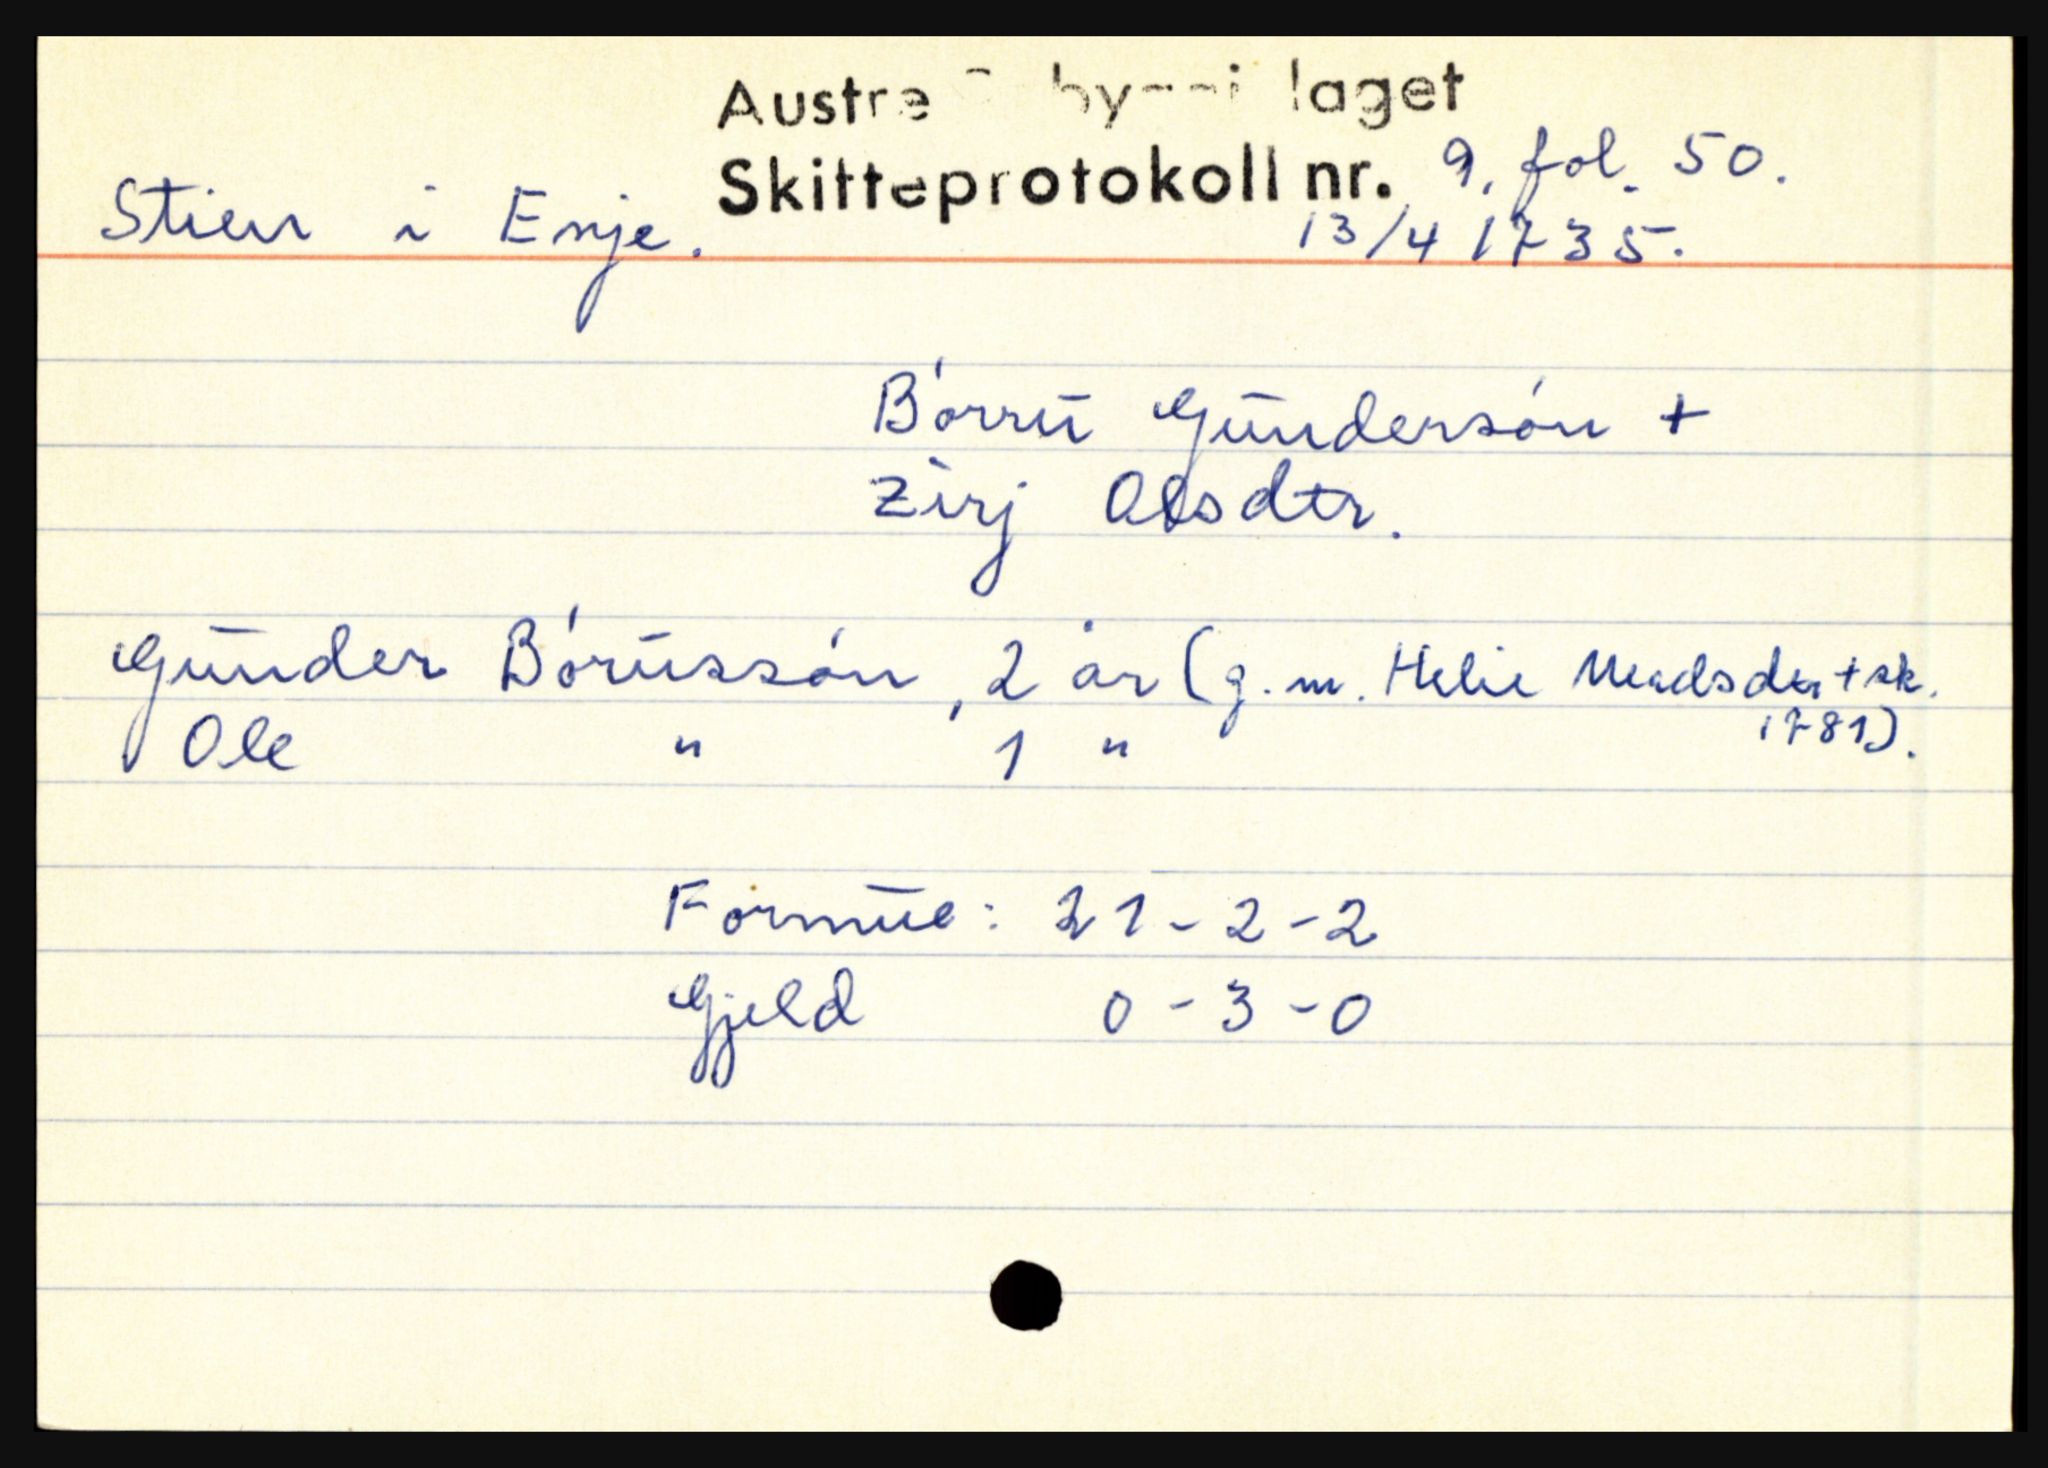 Austre laget
Skifteprotokoll nr. 9, fol. 50.
Stien i Enje. 13/4 1735.
Børrŭ Gŭndersøn +
Zirj Olsdtr.
Gŭnder Børŭssøn, 2 år (g. m. Helie Madsdtr + sk. 1781).
Ole " 1 "
Formŭe: 21-2-2
Gjeld 0-3-0